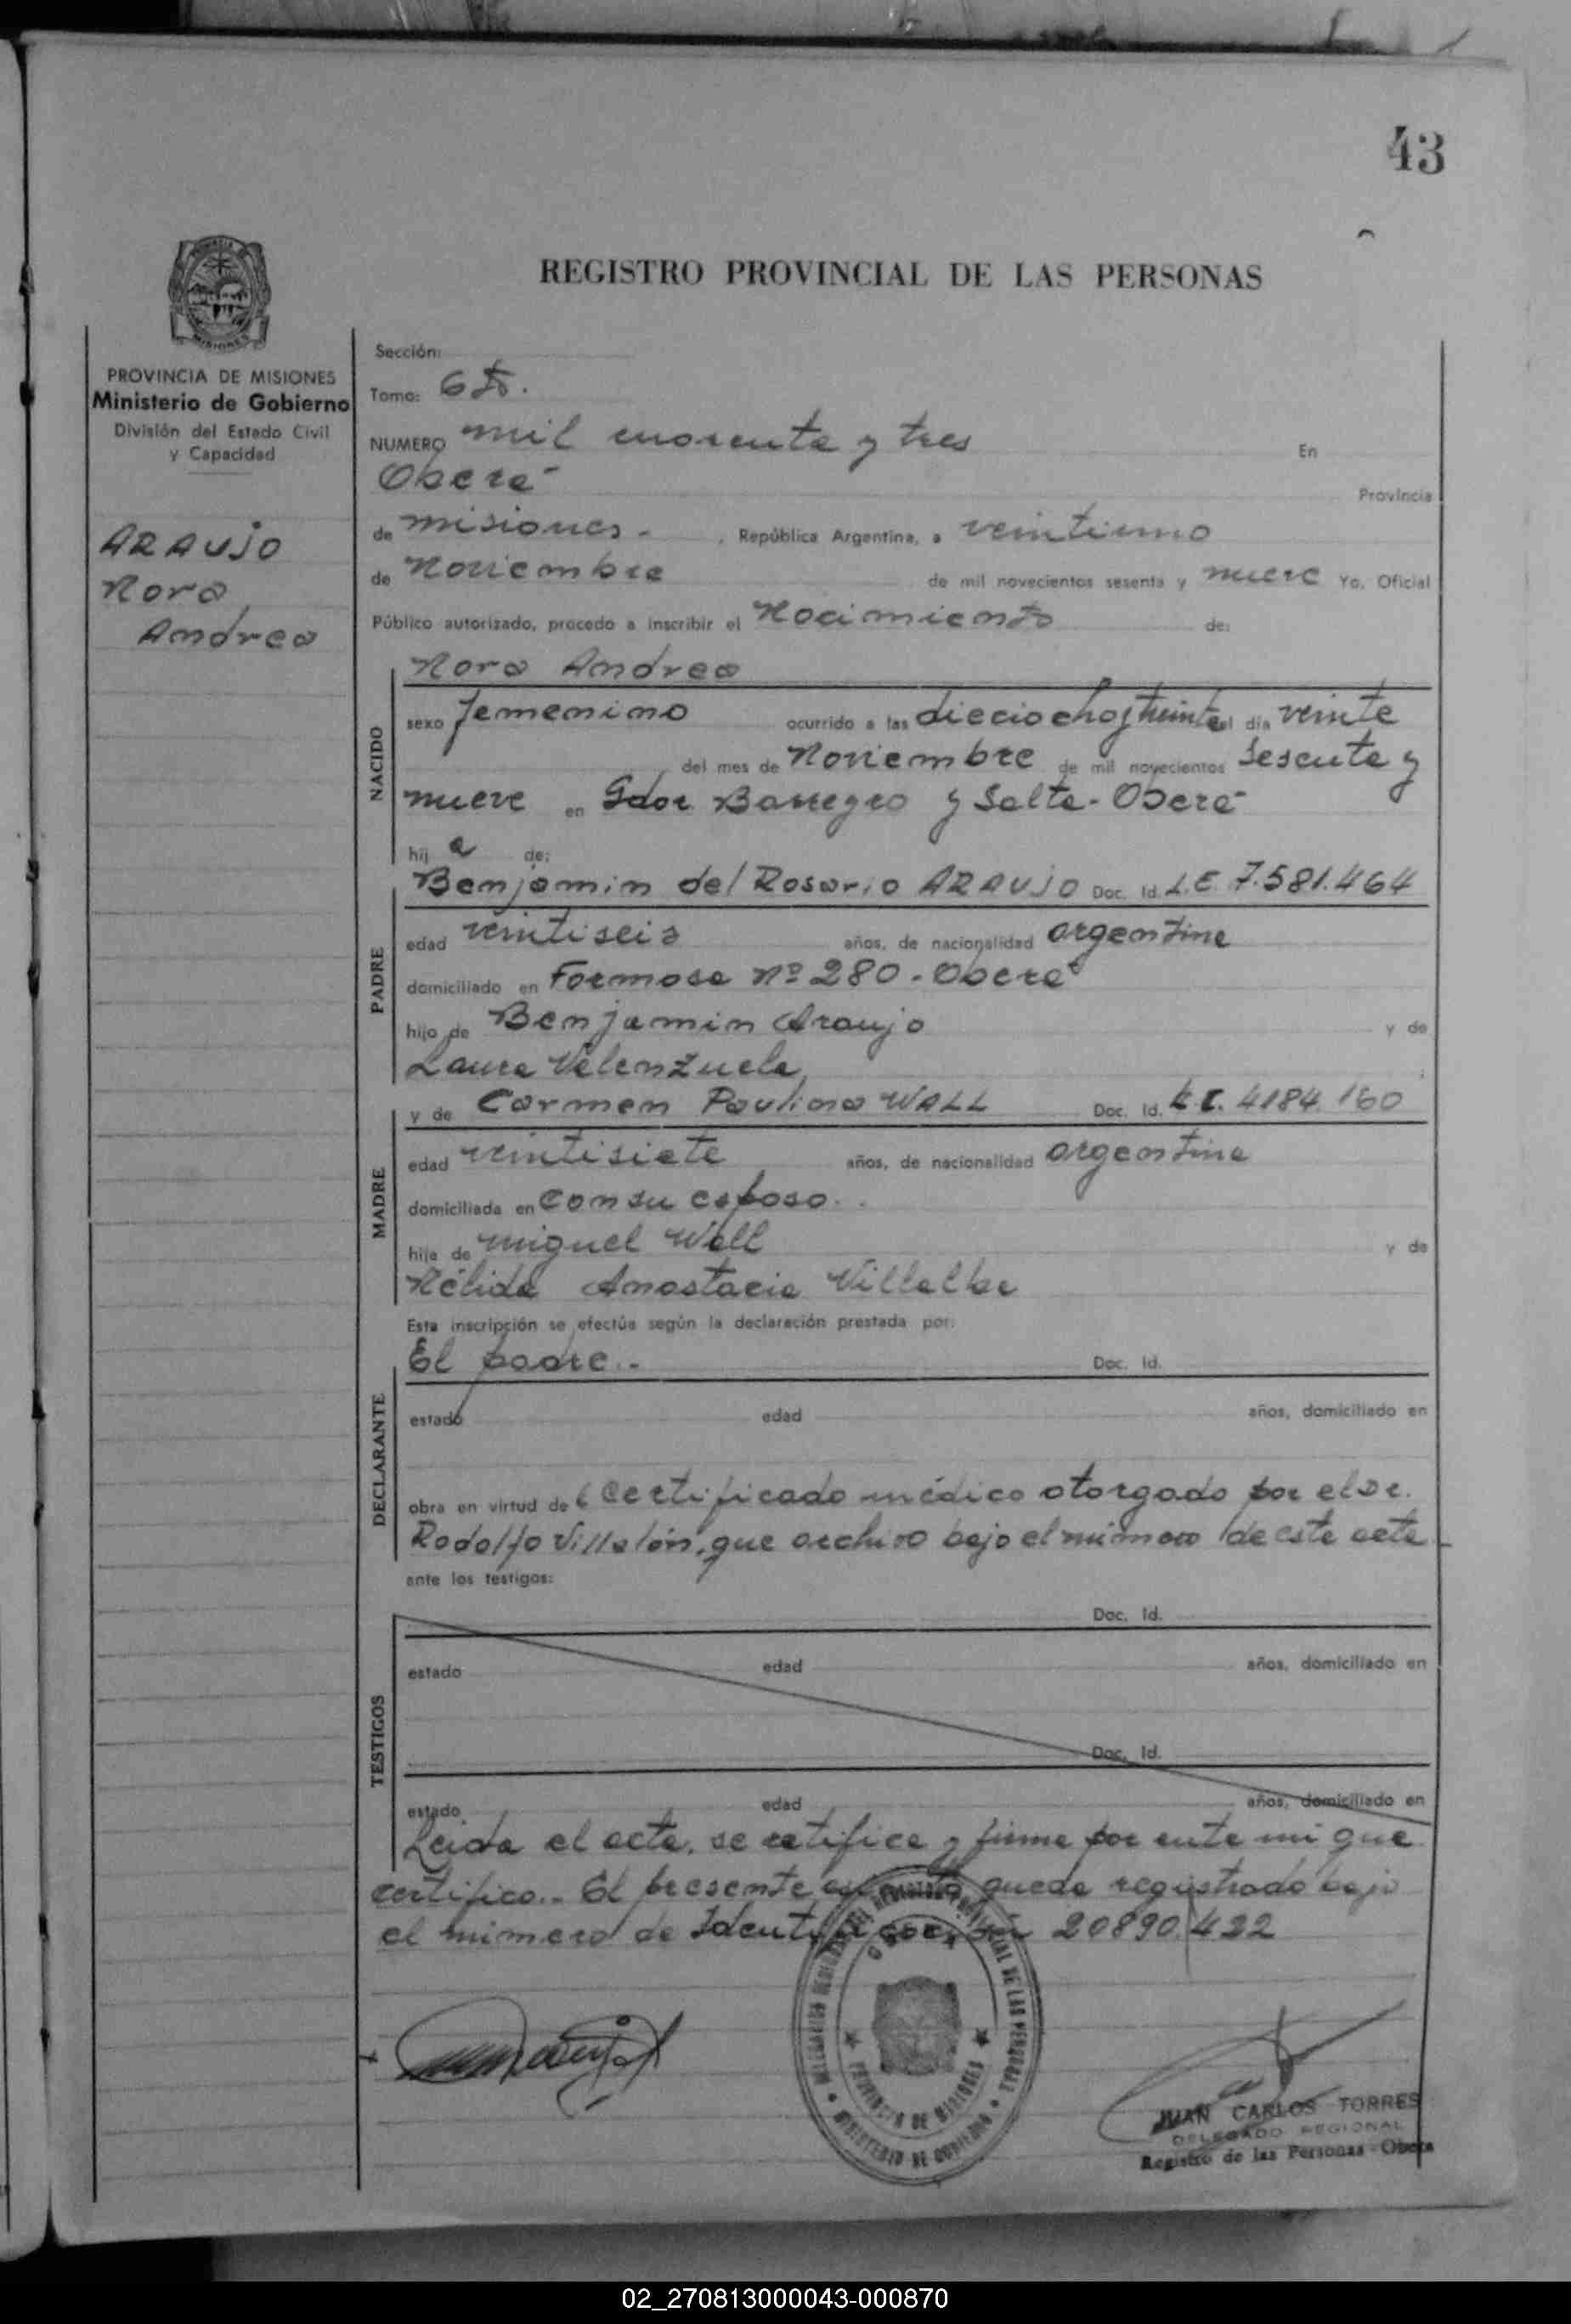 43
REGISTRO PROVINCIAL DE LAS PERSONAS
MISIONES
PROVINCIA DE MISIONES
Ministerio de Gobierno
División del Estado Civil
y Capacidad
ARAUJO
Nora
Andrea
Sección:
Tomo: 6
NUMERO mil cuarenta y tres En
Oberá Provincia
de misiones. , República Argentina, a veintiuno
de Noviembre de mil novecientos sesenta y nueve Yo, Oficial
Público autorizado, procedo a inscribir el Nacimiento de:
Nora Andrea
NACIDO
sexo femenino ocurrido a las dieciocho y treinta el día veinte
del mes de Noviembre de mil novecientos sesenta y
nueve en Gdor Barreyro y Salta - Oberá
hij a de:
Benjamin del Rosario ARAUJO Doc. Id. L.E. 7.581.464
PADRE
edad veintiseis años, de nacionalidad argentina
domiciliado en Formosa Nº 280 - Oberá
hijo de Benjamin Araujo y de
Laura Valenzuela
y de Carmen Paulina WALL Doc. Id. L.C. 4184.160
MADRE
edad veintisiete años, de nacionalidad argentina
domiciliada en con su esposo.
hija de miguel Wall y de
Nélida Anastacia Villalba
Esta inscripción se efectúa según la declaración prestada por:
El padre.- Doc. Id.
DECLARANTE
estado edad años, domiciliado en
obra en virtud de certificado médico otorgado por el Dr.
Rodolfo Villalón, que archivo bajo el número de este acta
ante los testigos:
Doc. Id.
TESTIGOS
estado edad años, domiciliado en
Doc. Id.
estado edad años, domiciliado en
Leida el acta, se ratifica y firma por ante mi que
certifico.- El presente queda registrado bajo
el número de Identificación 20890.422
PROVINCIA DE MISIONES
MINISTERIO DE GOBIERNO
JUAN CARLOS TORRES
DELEGADO REGIONAL
Registro de las Personas - Oberá
02_270813000043-000870